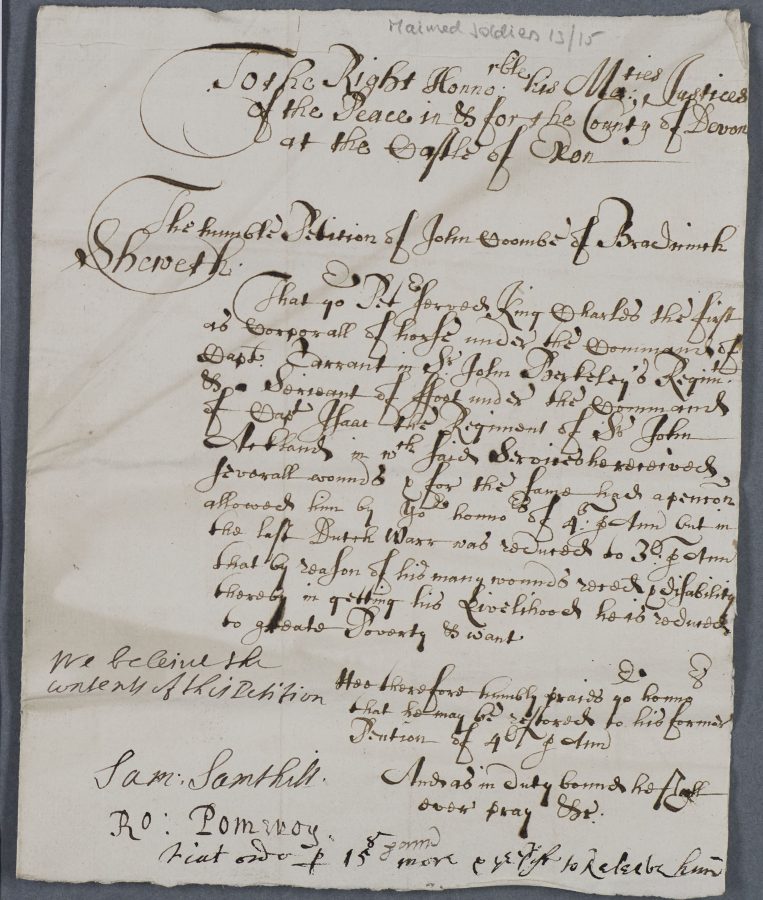 Maimed Soldiers 13/15
To the Right Honno:rble his Ma:ties Justices
of the Peace in & for the County of Devon
at the Castle of Exon
The humble Petition of John Coombe of Bradninch
Sheweth.
That yor Petr served King Charles the first
as Corporall of horse under the Command of
Capt. Tarrant in Sr John Berkeley's Regimt.
& a Serjeant of ffoot under the Command
of Capt Isaac the Regiment of Sr John
Ackland in wch said Services he received
severall wounds & for the same had a pencon
allowed him by yor honnors of 4li. p Ann but in
the last Dutch Warr was reduced to 3li. p Ann
that by reason of his many wounds reced & disability
thereby in getting his Livelihood he is reduced
to greate Poverty & want
Hee therefore humbly praies yor honnrs
that he may be restored to his former
Pention of 4li p Ann
And as in duty bound he shall
ever pray &c.
We beleive the
contents of this Petition
Sam: Sainthill.
Ro: Pomeroy
fiat ordo p more to Releeve him